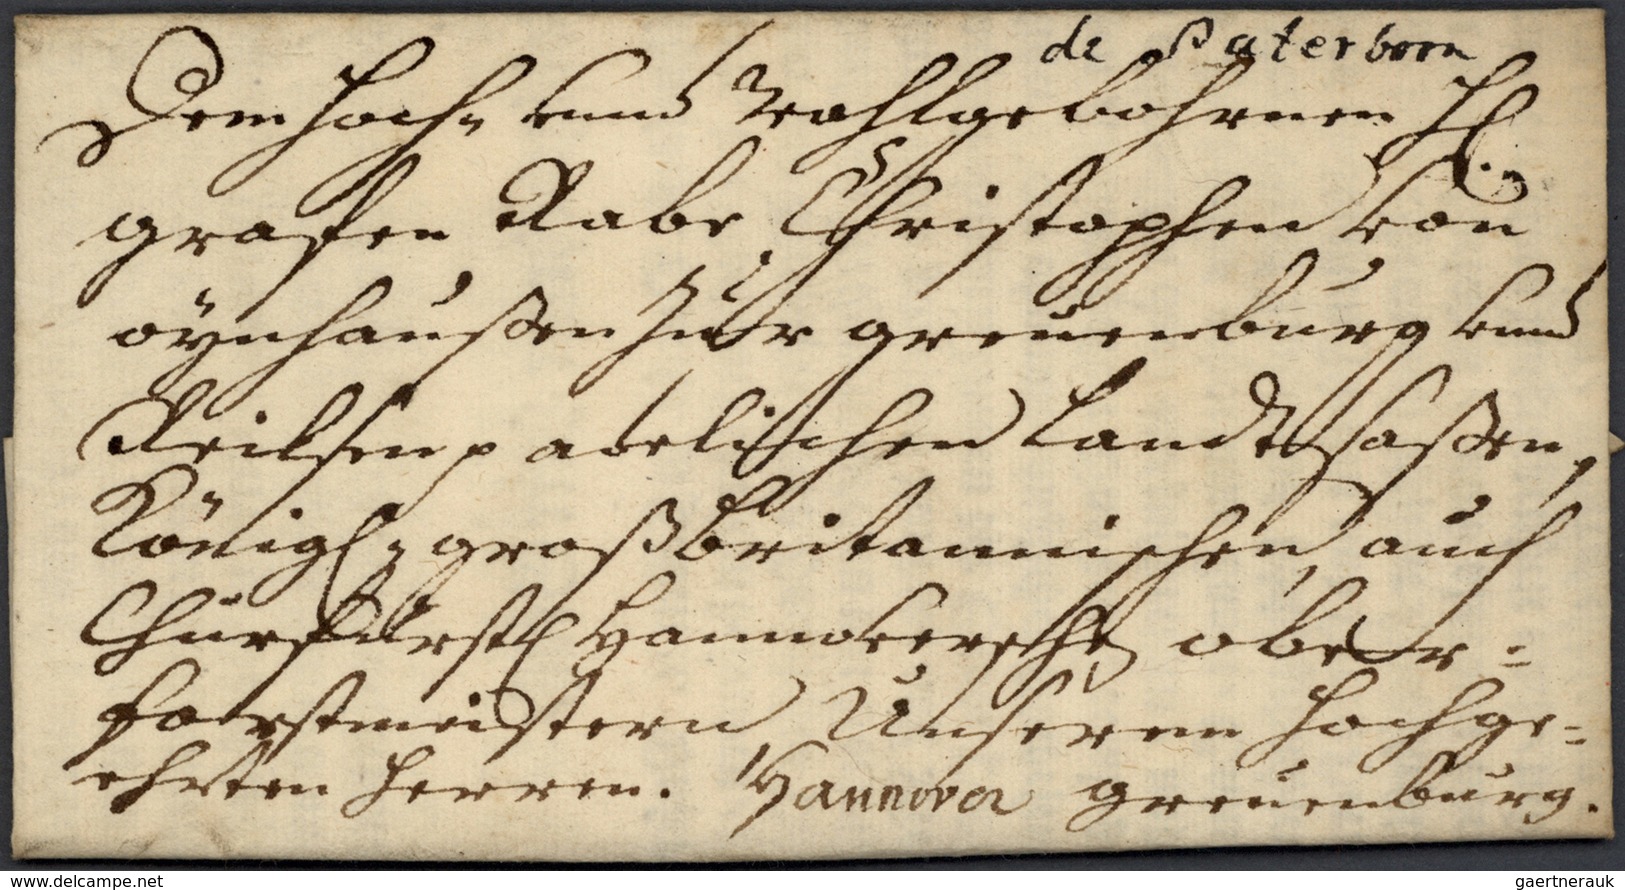 de Paterborn
Dem Hoch= und Wohlgebohrnen H
grafen Rabe Christophen von
öÿnhaußen Zur greuenburg und
Reilsen p adelischen Landtsaßen,
Königl: großbritannischen, auch
Churfürstl Hannoversche ober=
forstmeistern Unserem Hochge=
ehrten Herren. Hannover greuenburg.
www.delcampe.net
gaertnerauk